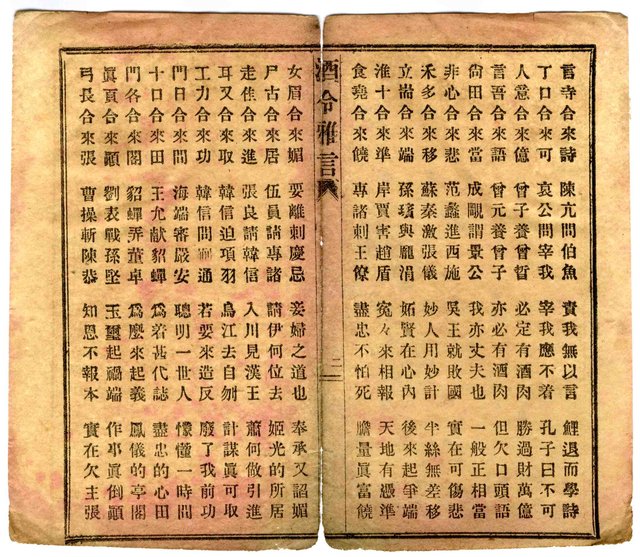 言寺合來詩 陳亢問伯魚 責我無以言 鯉退而學詩
丁口合來可 袁公問宰我 宰我應不着 孔子曰不可
人意合來億 曾子養曾晳 必定有酒肉 勝過財萬億
言吾合來語 曾元養曾子 亦必有酒肉 但欠口頭語
尚田合來當 成覵謂景公 我亦丈夫也 一般正相當
非心合來悲 范蠡進西施 吳王就敗國 實在可傷悲
禾多合來移 蘇秦激張儀 妙人用妙計 半絲無差移
立耑合來端 孫臏與龐涓 妬賢在心內 後來起爭端
淮十合來準 岸賈害趙盾 寃寃來相報 天地有憑準
食堯合來饒 專諸刺王僚 盡忠不怕死 膽量眞富饒
酒令雅言 二
女眉合來媚 要離刺慶忌 妾婦之道也 奉承又諂媚
尸古合來居 伍員請專諸 請伊何位去 姬光的所居
走隹合來進 張良請韓信 入川見漢王 蕭何做引進
耳又合來取 韓信迫項羽 烏江去自刎 計謀眞可取
工力合來功 韓信問蒯通 若要來造反 廢了我前功
門日合來間 海端審嚴安 聰明一世人 懞懂一時間
十口合來田 王允献貂蟬 爲着甚代誌 盡忠的心田
門各合來閣 貂蟬弄董卓 爲麼來起義 鳳儀的亭閣
眞頁合來顚 劉表戰孫堅 玉璽起禍端 作事眞倒顚
弓長合來張 曹操斬陳恭 知恩不報本 實在欠主張